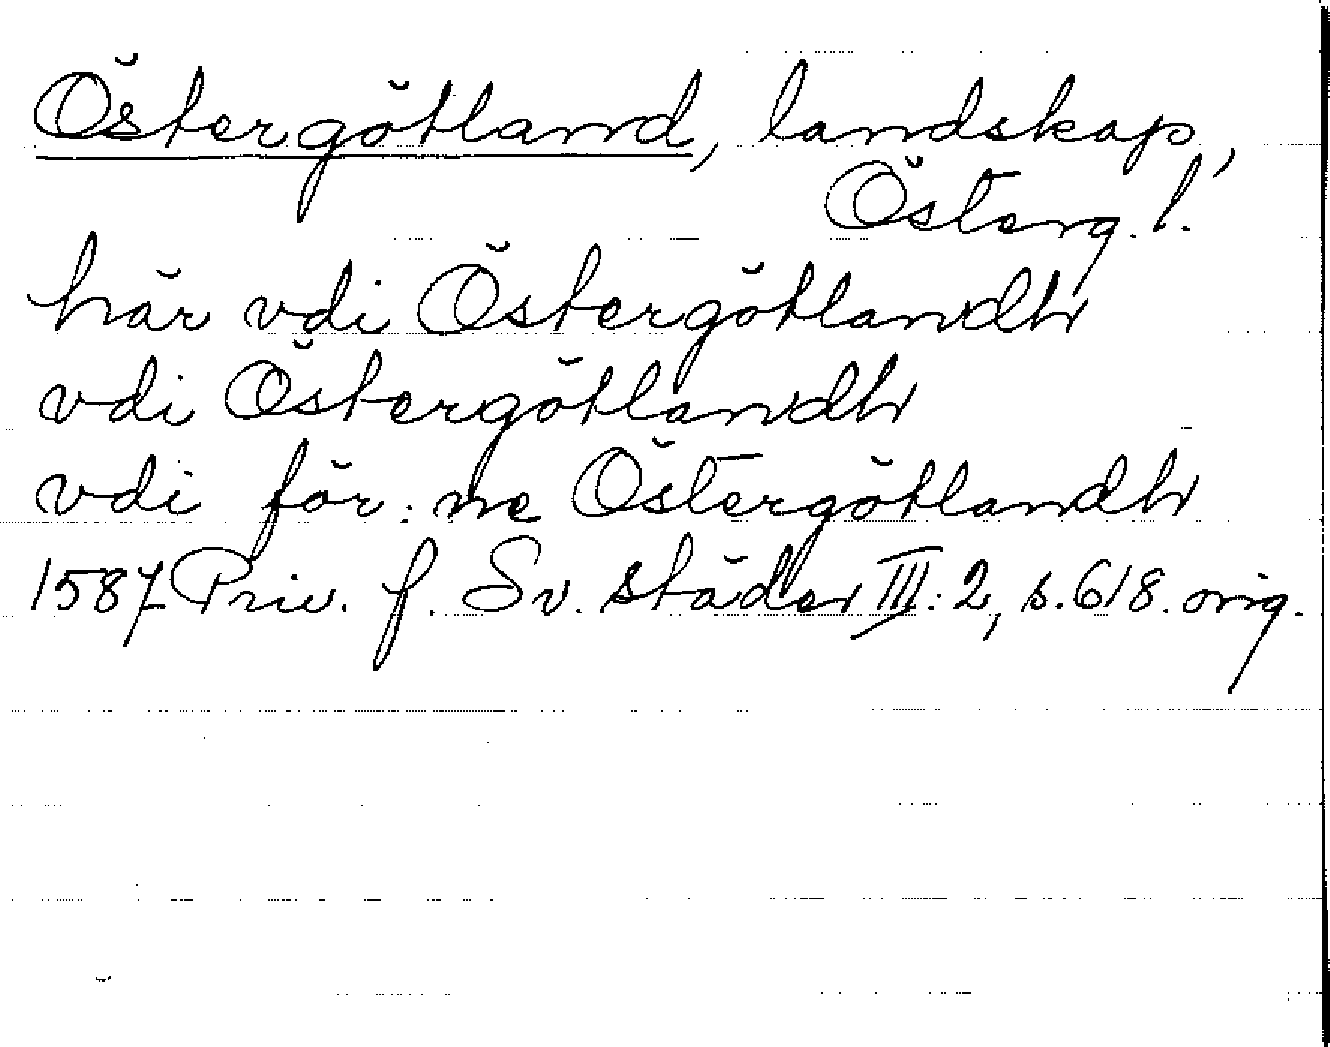 Östergötland, landskap,
Österg. l.
här vdi Östergötlandh
vdi Östergötlandh
vdi för: ne Östergötlandh
1587 Priv. f. Sv. städer III: 2, s. 618. orig.